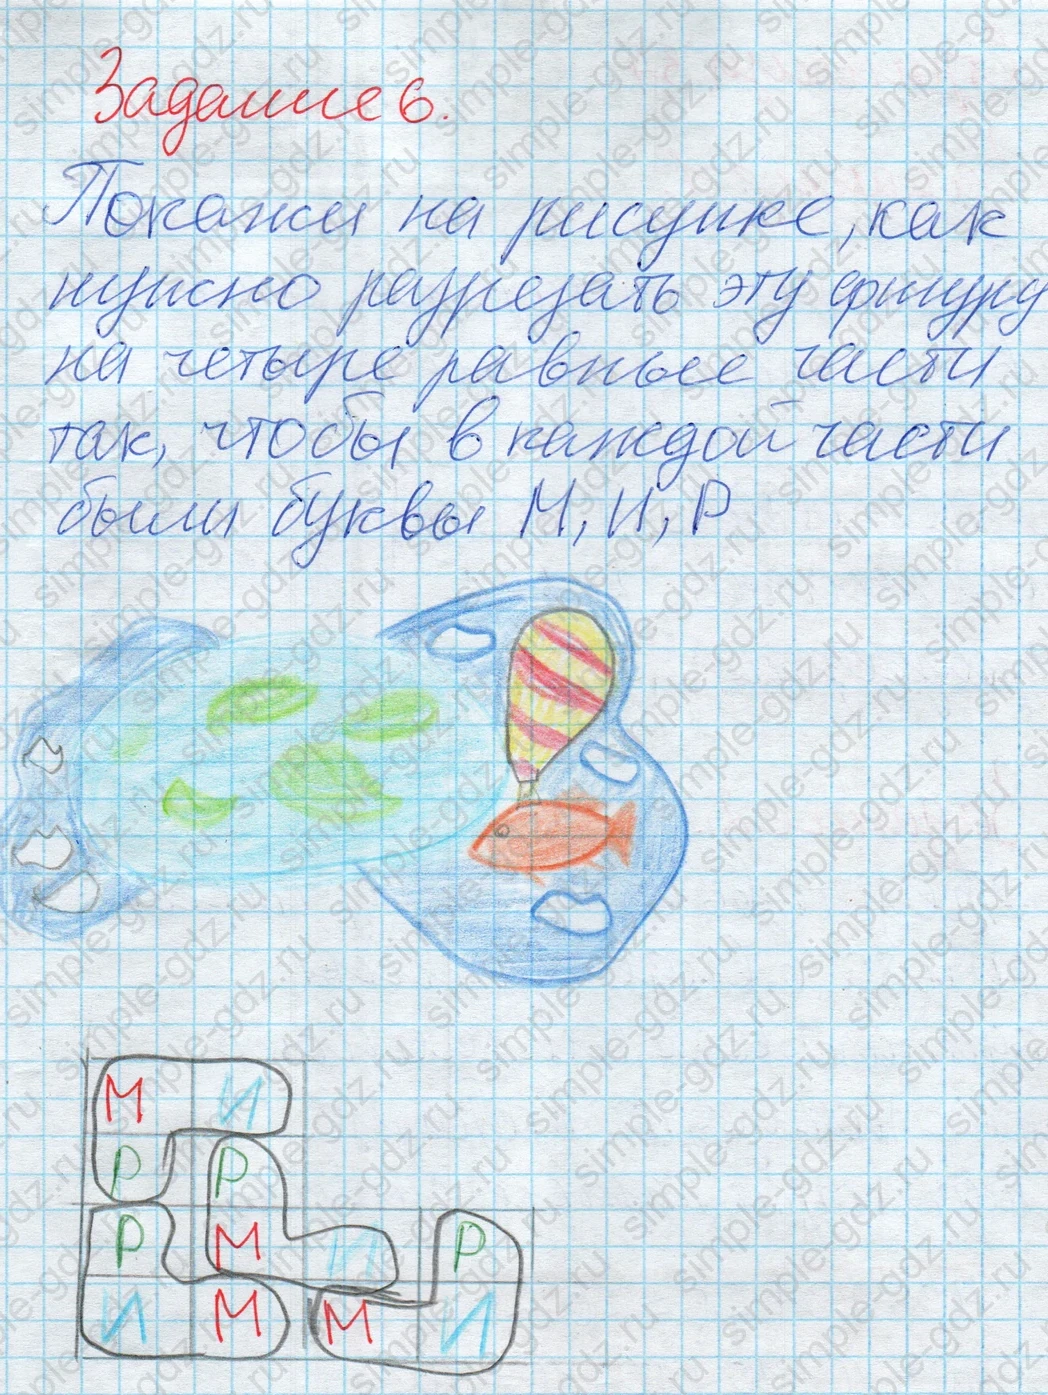 Задание 6.
Покажи на рисунке, как
нужно разрезать эту фигуру
на четыре равные части
так, чтобы в каждой части
были буквы М, И, Р
М И
Р Р
Р М И Р
И М М И
simple-gdz.ru